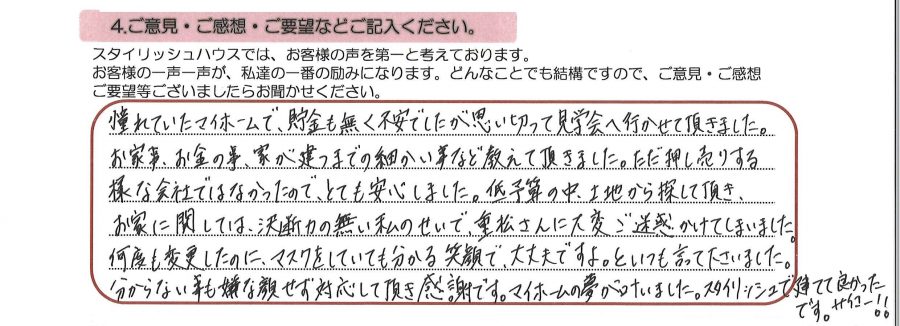 4.ご意見・ご感想・ご要望などご記入ください。
スタイリッシュハウスでは、お客様の声を第一と考えております。
お客様の一声一声が、私達の一番の励みになります。どんなことでも結構ですので、ご意見・ご感想
ご要望等ございましたらお聞かせください。
憧れていたマイホームで、貯金も無く不安でしたが思い切って見学会へ行かせて頂きました。
お家事、お金の事、家が建つまでの細かい事など教えて頂きました。ただ押し売りする
様な会社ではなかったので、とても安心しました。低予算の中、土地から探して頂き、
お家に関しては、決断力の無い私のせいで、重松さんに大変ご迷惑かけてしまいました。
何度も変更したのに、マスクをしていても分かる笑顔で、大丈夫ですよ。といつも言って下さいました。
分からない事も嫌な顔せず対応して頂き感謝です。マイホームの夢が叶いました。スタイリッシュで建てて良かった
です。サイコー!!